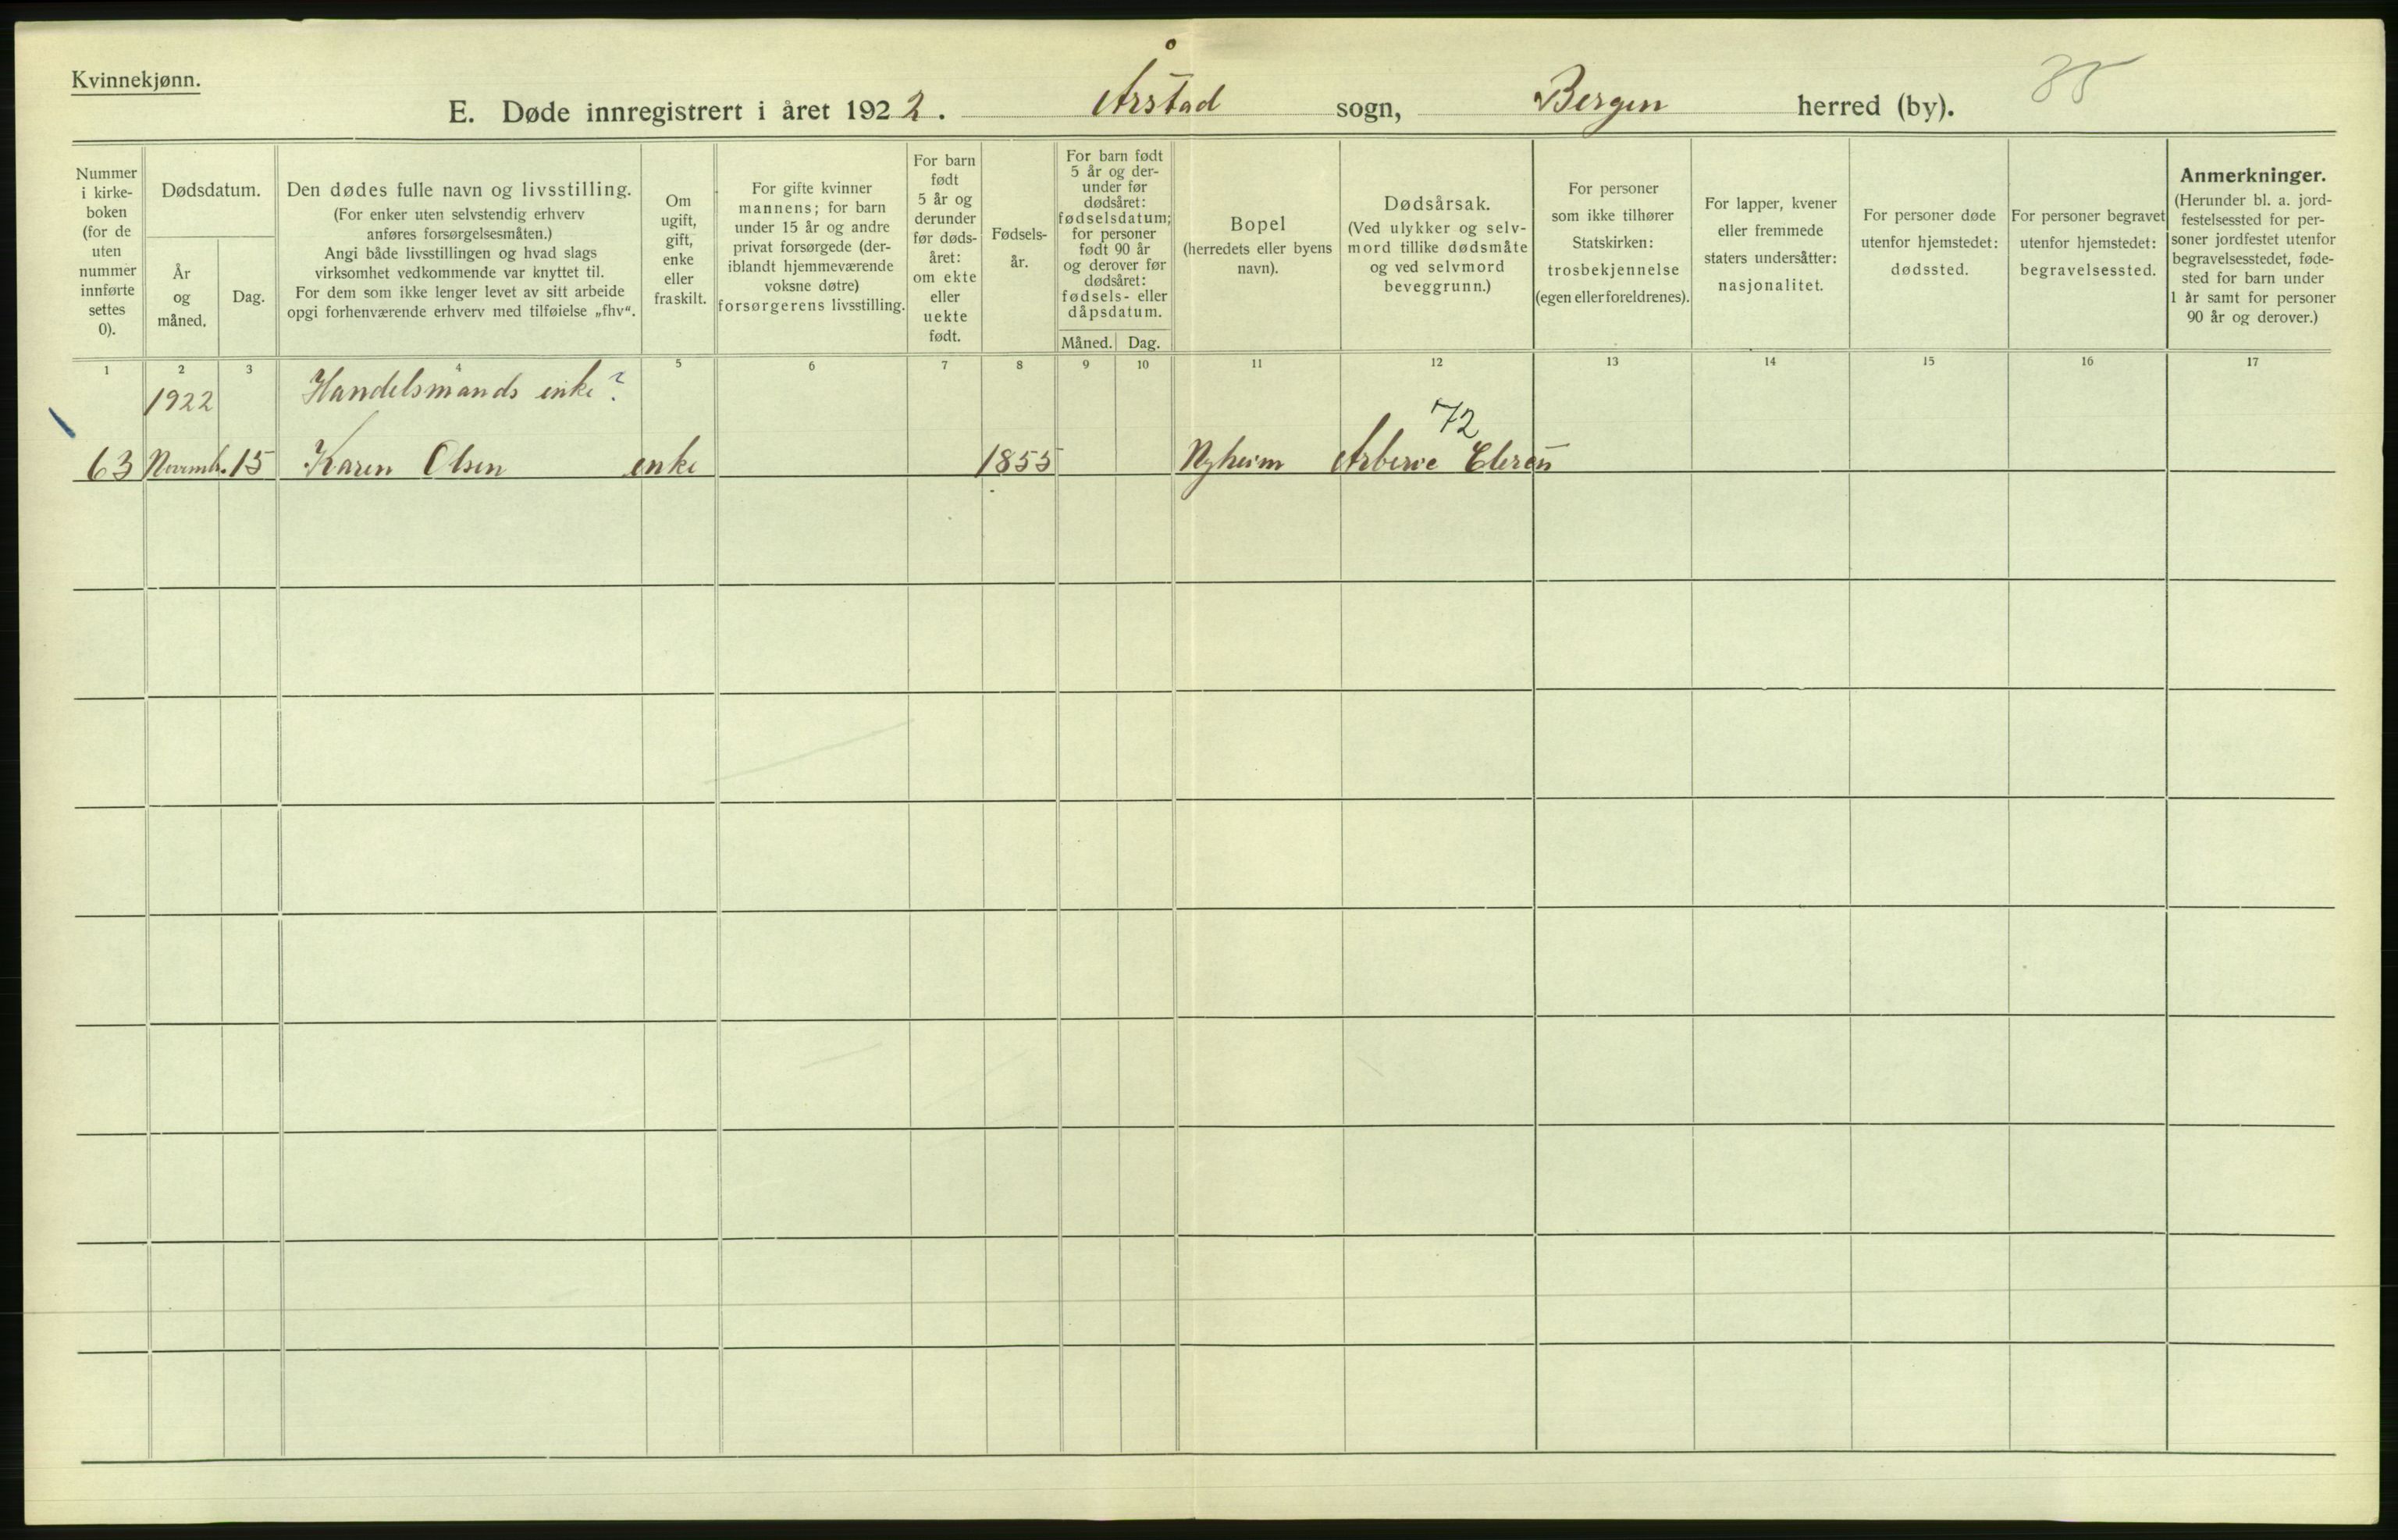 Kvinnekjønn.
E. Døde innregistrert i året 1922. Årstad sogn, Bergen herred (by). 35
Nummer i kirke- boken (for de uten nummer innførte settes 0).
Dødsdatum.
År og måned.
Dag.
Den dødes fulle navn og livsstilling.
(For enker uten selvstendig erhverv
anføres forsørgelsesmåten.)
Angi både livsstillingen og hvad slags
virksomhet vedkommende var knyttet til.
For dem som ikke lenger levet av sitt arbeide
opgi forhenværende erhverv med tilføielse „fhv“.
Om ugift, gift, enke eller fraskilt.
For gifte kvinner
mannens; for barn
under 15 år og andre
privat forsørgede (der-
iblandt hjemmeværende
voksne døtre)
forsørgerens livsstilling.
For barn født 5 år og derunder før døds- året: om ekte eller uekte født.
Fødsels- år.
For barn født
5 år og der-
under før
dødsåret:
fødselsdatum;
for personer
født 90 år
og derover før
dødsåret:
fødsels- eller
dåpsdatum.
Måned. Dag.
Bopel
(herredets eller byens
navn).
Dødsårsak.
(Ved ulykker og selv-
mord tillike dødsmåte
og ved selvmord
beveggrunn.)
For personer
som ikke tilhører
Statskirken:
trosbekjennelse
(egen eller foreldrenes).
For lapper, kvener
eller fremmede
staters undersåtter:
nasjonalitet.
For personer døde
utenfor hjemstedet:
dødssted.
For personer begravet
utenfor hjemstedet:
begravelsessted.
Anmerkninger.
(Herunder bl. a. jord-
festelsessted for per-
soner jordfestet utenfor
begravelsesstedet, føde-
sted for barn under
1 år samt for personer
90 år og derover.)
1 2 3 4 5 6 7 8 9 10 11 12 13 14 15 16 17
1922 Handelsmands enke ?
72
63 Novemb. 15 Karen Olsen enke 1855 Nyheim